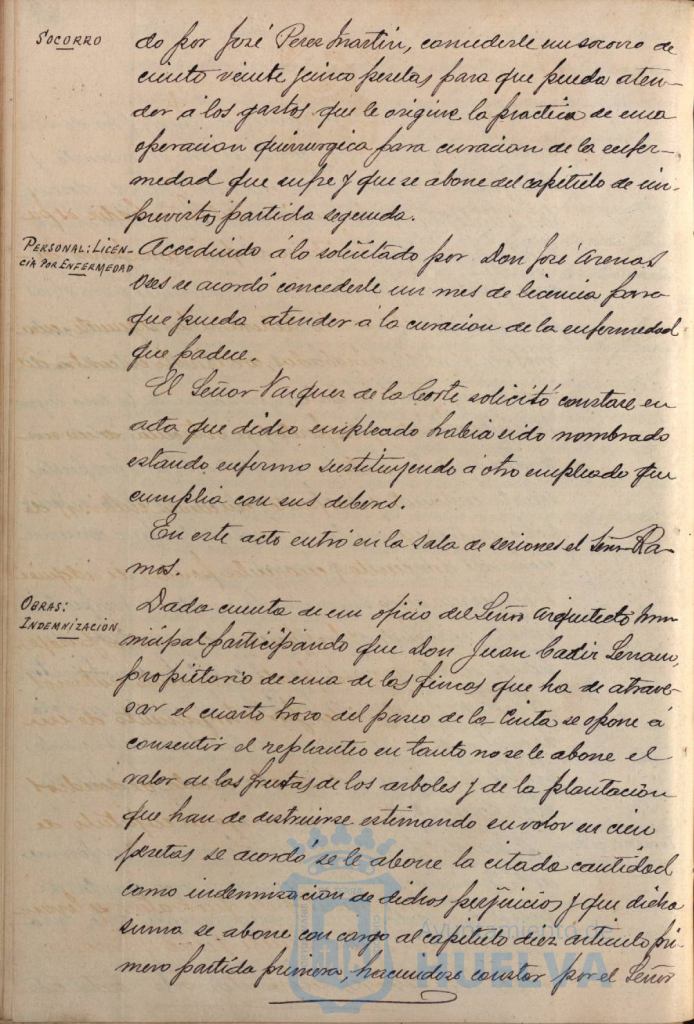 SOCORRO
do por José Perez Martin, concederle un socorro de
ciento veinte y cinco pesetas para que pueda aten-
der á los gastos que le origine la practica de una
operacion quirurgica para curacion de la enfer-
medad que sufre y que se abone del capitulo de im-
previstos, partida segunda.
PERSONAL: LICEN-
CIA POR ENFERMEDAD
Accediendo á lo solicitado por Don José Arenas
se acordó concederle un mes de licencia para
que pueda atender á la curacion de la enfermedad
que padece.
El Señor Vazquez de la Corte solicitó constase en
acta que dicho empleado habia sido nombrado
estando enfermo sustituyendo á otro empleado que
cumplia con sus deberes.
En este acto entró en la sala de sesiones el Señor Ra-
mos.
OBRAS:
INDEMNIZACIÓN
Dada cuenta de un oficio del Señor Arquitecto mu-
nicipal participando que Don Juan Cadir Serrano,
propietario de una de las fincas que ha de atrave-
sar el cuarto trozo del paseo de la Cinta se opone á
consentir el replanteo en tanto no se le abone el
valor de las frutas de los arboles y de la plantación
que han de destruirse estimando su valor en cien
pesetas se acordó se le abone la citada cantidad
como indemnización de dichos perjuicios y que dicha
suma se abone con cargo al capitulo diez articulo pri-
mero partida primera, haciendose constar por el Señor
Ayuntamiento de
HUELVA